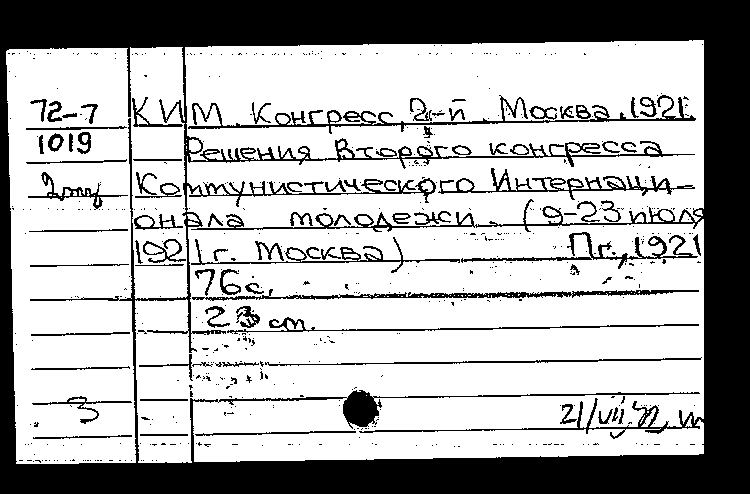 72-7 КИМ. Конгресс, 2-й. Москва. 1921.
1019 Решения Второго конгресса
Коммунистического Интернаци-
онала молодежи. (9-23 июля
1921 г. Москва) Пг., 1921
76 с.
23 ст.
3 21/VII